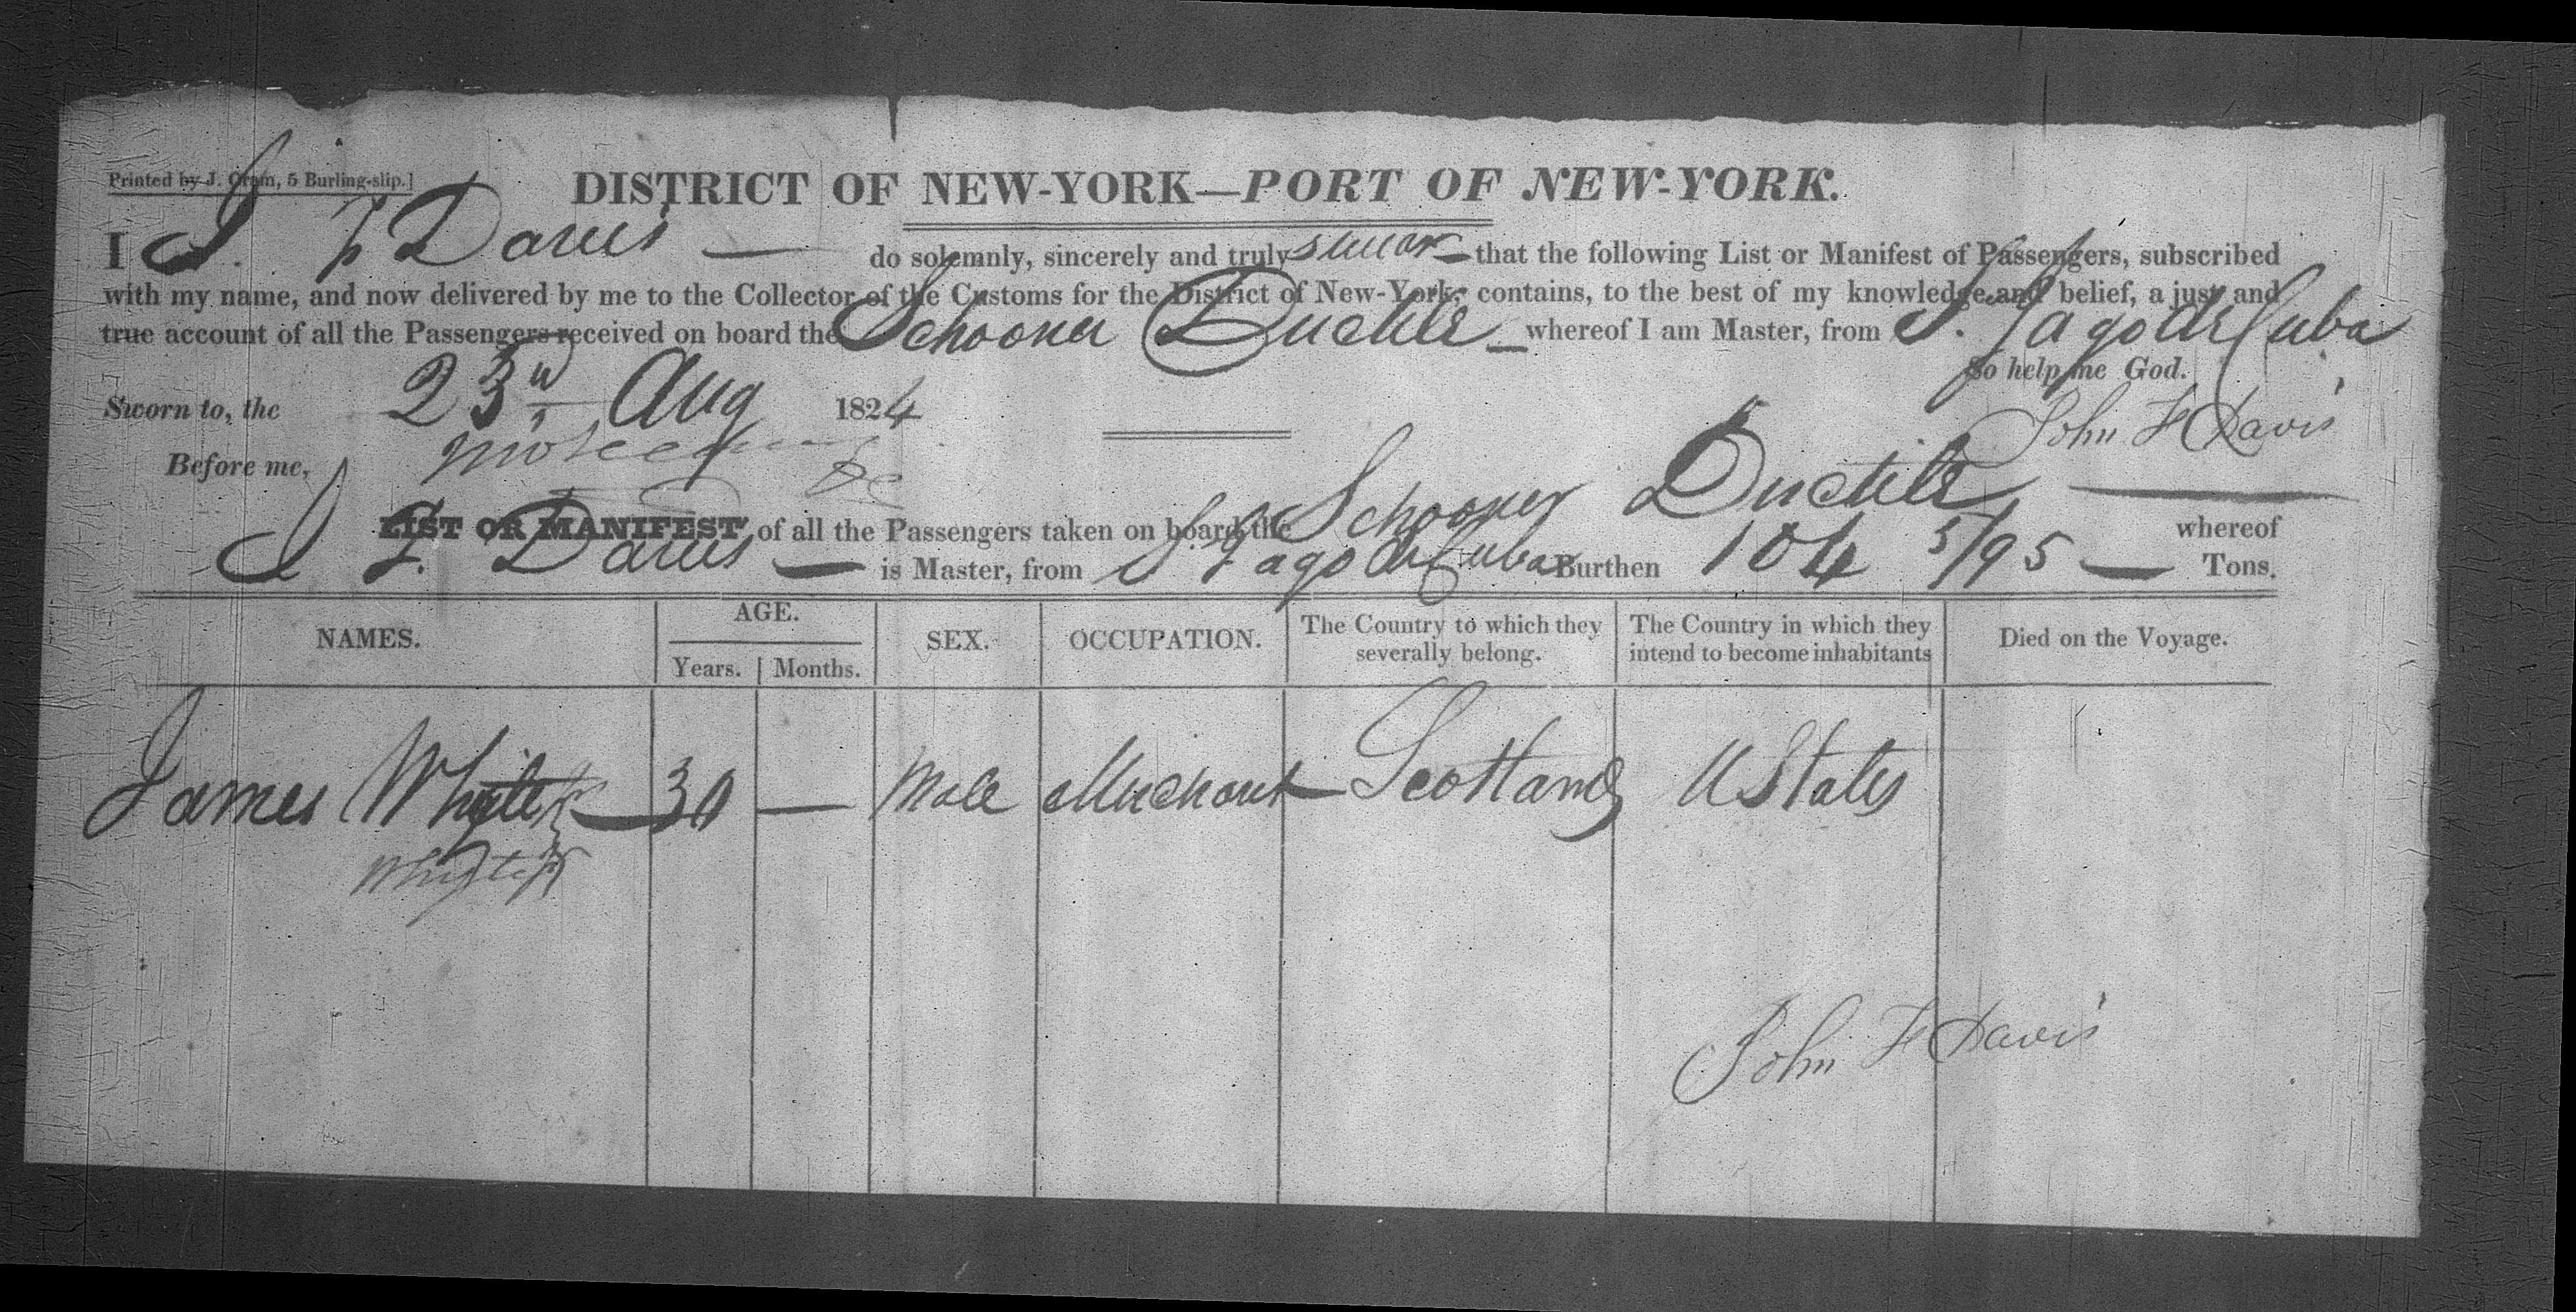 Printed by J. Oram, 5 Burling-slip.]
DISTRICT OF NEW-YORK—PORT OF NEW-YORK.
I J. F Davis — do solemnly, sincerely and truly swear — that the following List or Manifest of Passengers, subscribed
with my name, and now delivered by me to the Collector of the Customs for the District of New-York, contains, to the best of my knowledge and belief, a just and
true account of all the Passengers received on board the Schooner Ductile — whereof I am Master, from S. Jago de Cuba
So help me God.
Sworn to, the 23d Aug 1824
John F Davis
Before me,
LIST OR MANIFEST of all the Passengers taken on board the Schooner Ductile whereof
J F. Davis — is Master, from S. Jago de Cuba Burthen 104 5/95 — Tons.
NAMES. AGE. Years. Months. SEX. OCCUPATION. The Country to which they severally belong. The Country in which they intend to become inhabitants Died on the Voyage.
James Whyte — 30 — Male Merchant — Scotland U States
Whyte
John F Davis